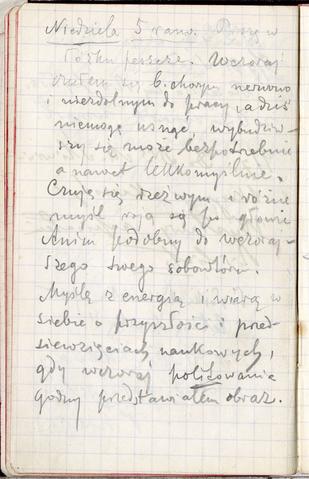 Niedziela 5 rano. Piszę w
łóżku jeszcze. Wczoraj
czułem się b. chorym nerwowo
i niezdolnym do pracy, a dziś
niemogę usnąć, wybudziw-
szy się może bezpotrzebnie
a nawet lekkomyślnie.
Czuję się rzeźwym i różne
myśli roją się po głowie
Anim podobny do wczoraj-
szego swego sobowtóru.
Myślę z energią i wiarą w
siebie o przyszłości i przed-
sięwzięciach naukowych,
gdy wczoraj politowania
godny przedstawiałem obraz.